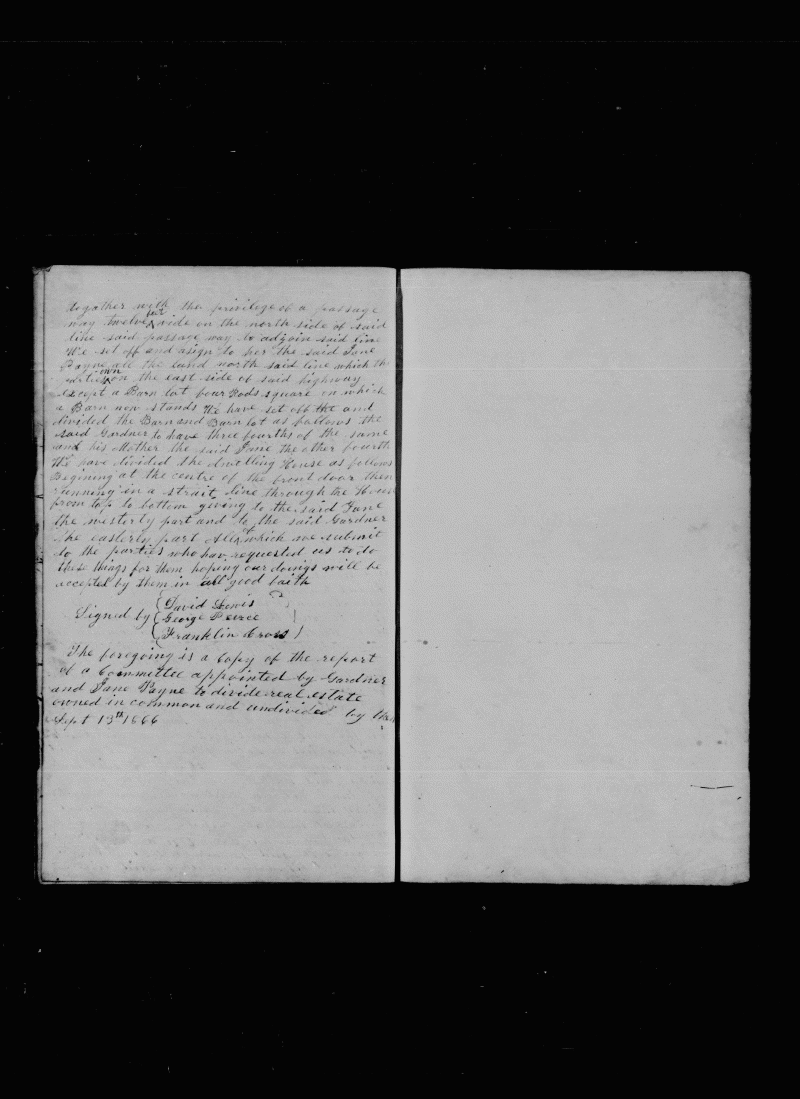 together with the privilege of a passage
way twelve feet wide on the north side of said
line said passage way to adjoin said line
We set off and asign to her the said Jane
Payne all the land north said line which the
parties own on the east side of said highway
except a Barn lot four Rods square on which
a Barn now stands We have set off the and
divided the Barn and Barn lot as follows the
said Gardner to have three fourths of the same
and his Mother the said Jane the other fourth
We have divided the dwelling House as follows
Begining at the centre of the front door then
running in a strait line through the House
from top to bottom giving to the said Jane
the westerly part and to the said Gardner
the easterly part All of which we submit
to the parties who hav requested us to do
these things for them hoping our doings will be
accepted by them in all good faith
Signed by { David Lewis
{ George Peirce
{ Franklin Cross }
The foregoing is a Copy of the report
of a Committee appointed by Gardner
and Jane Payne to divide real estate
owned in common and undivided by them
Sept 13th 1866